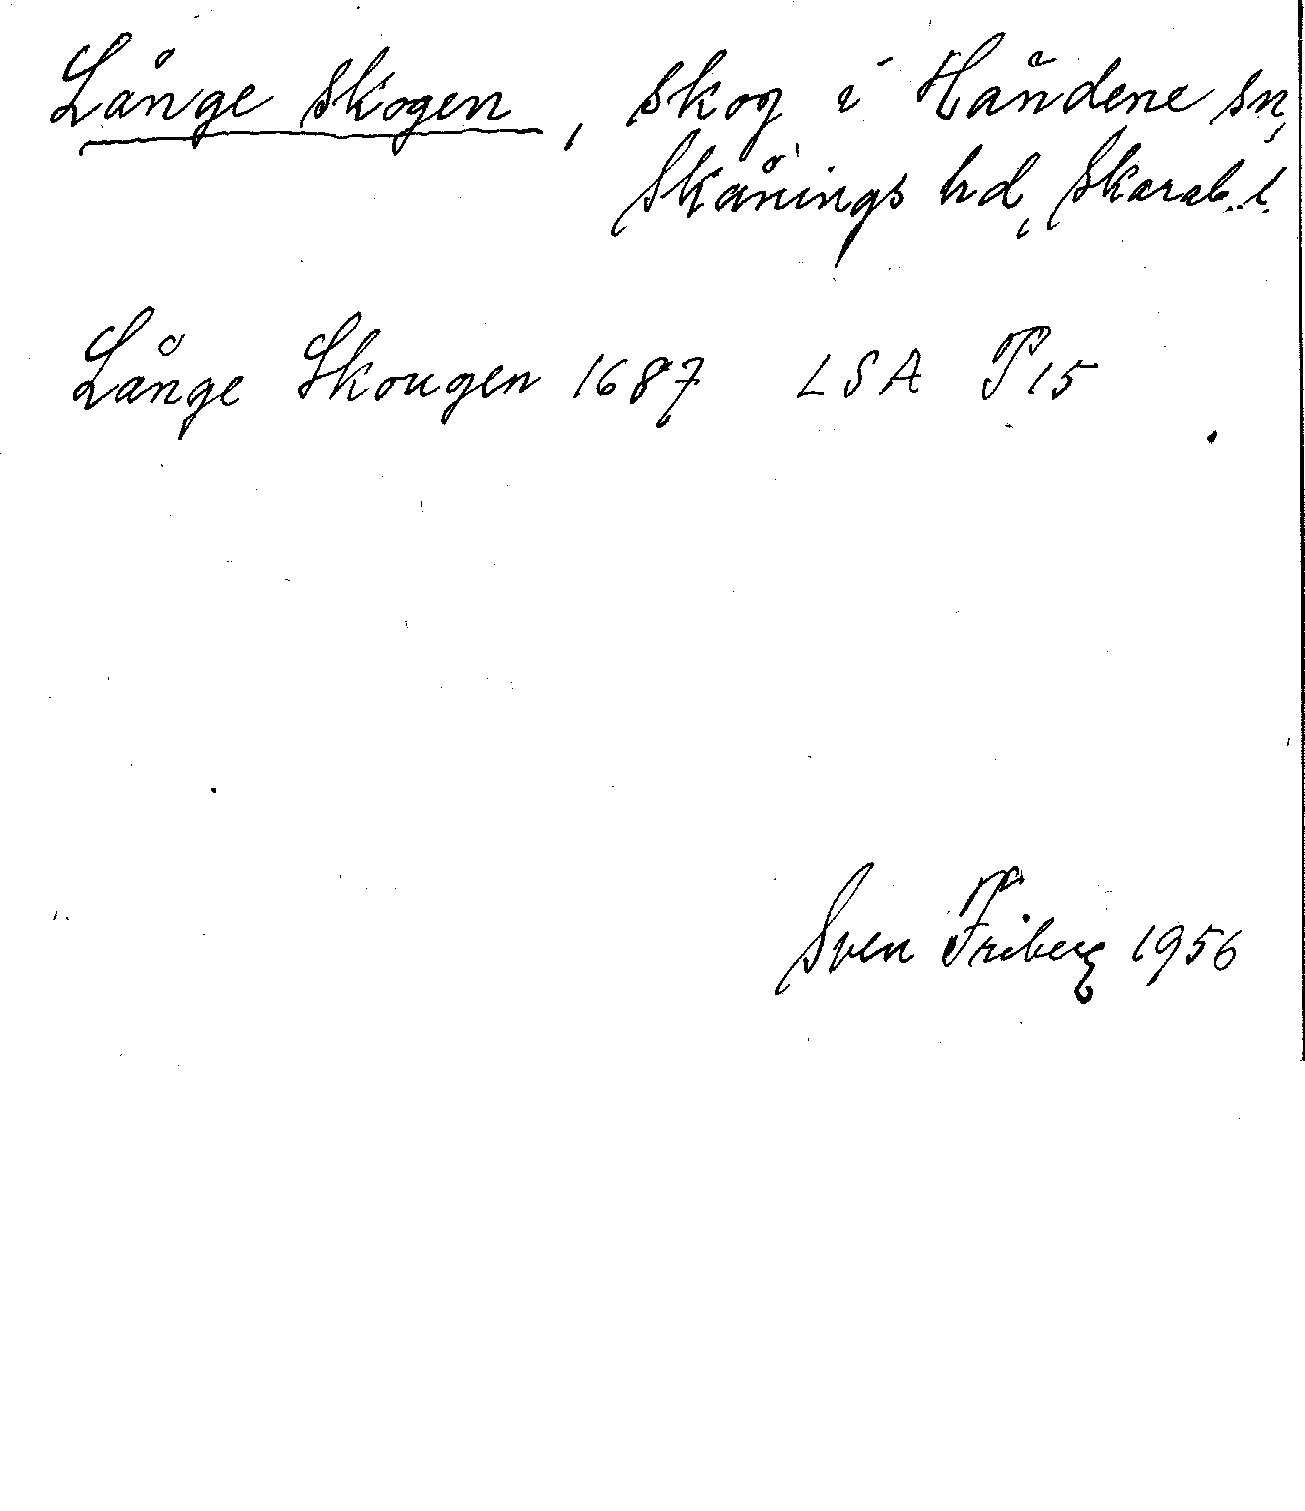 Långe skogen, skog i Händene sn,
Skånings hd, Skarab. l.
Långe Skougen 1687 LSA P 15
Sven Friberg 1956